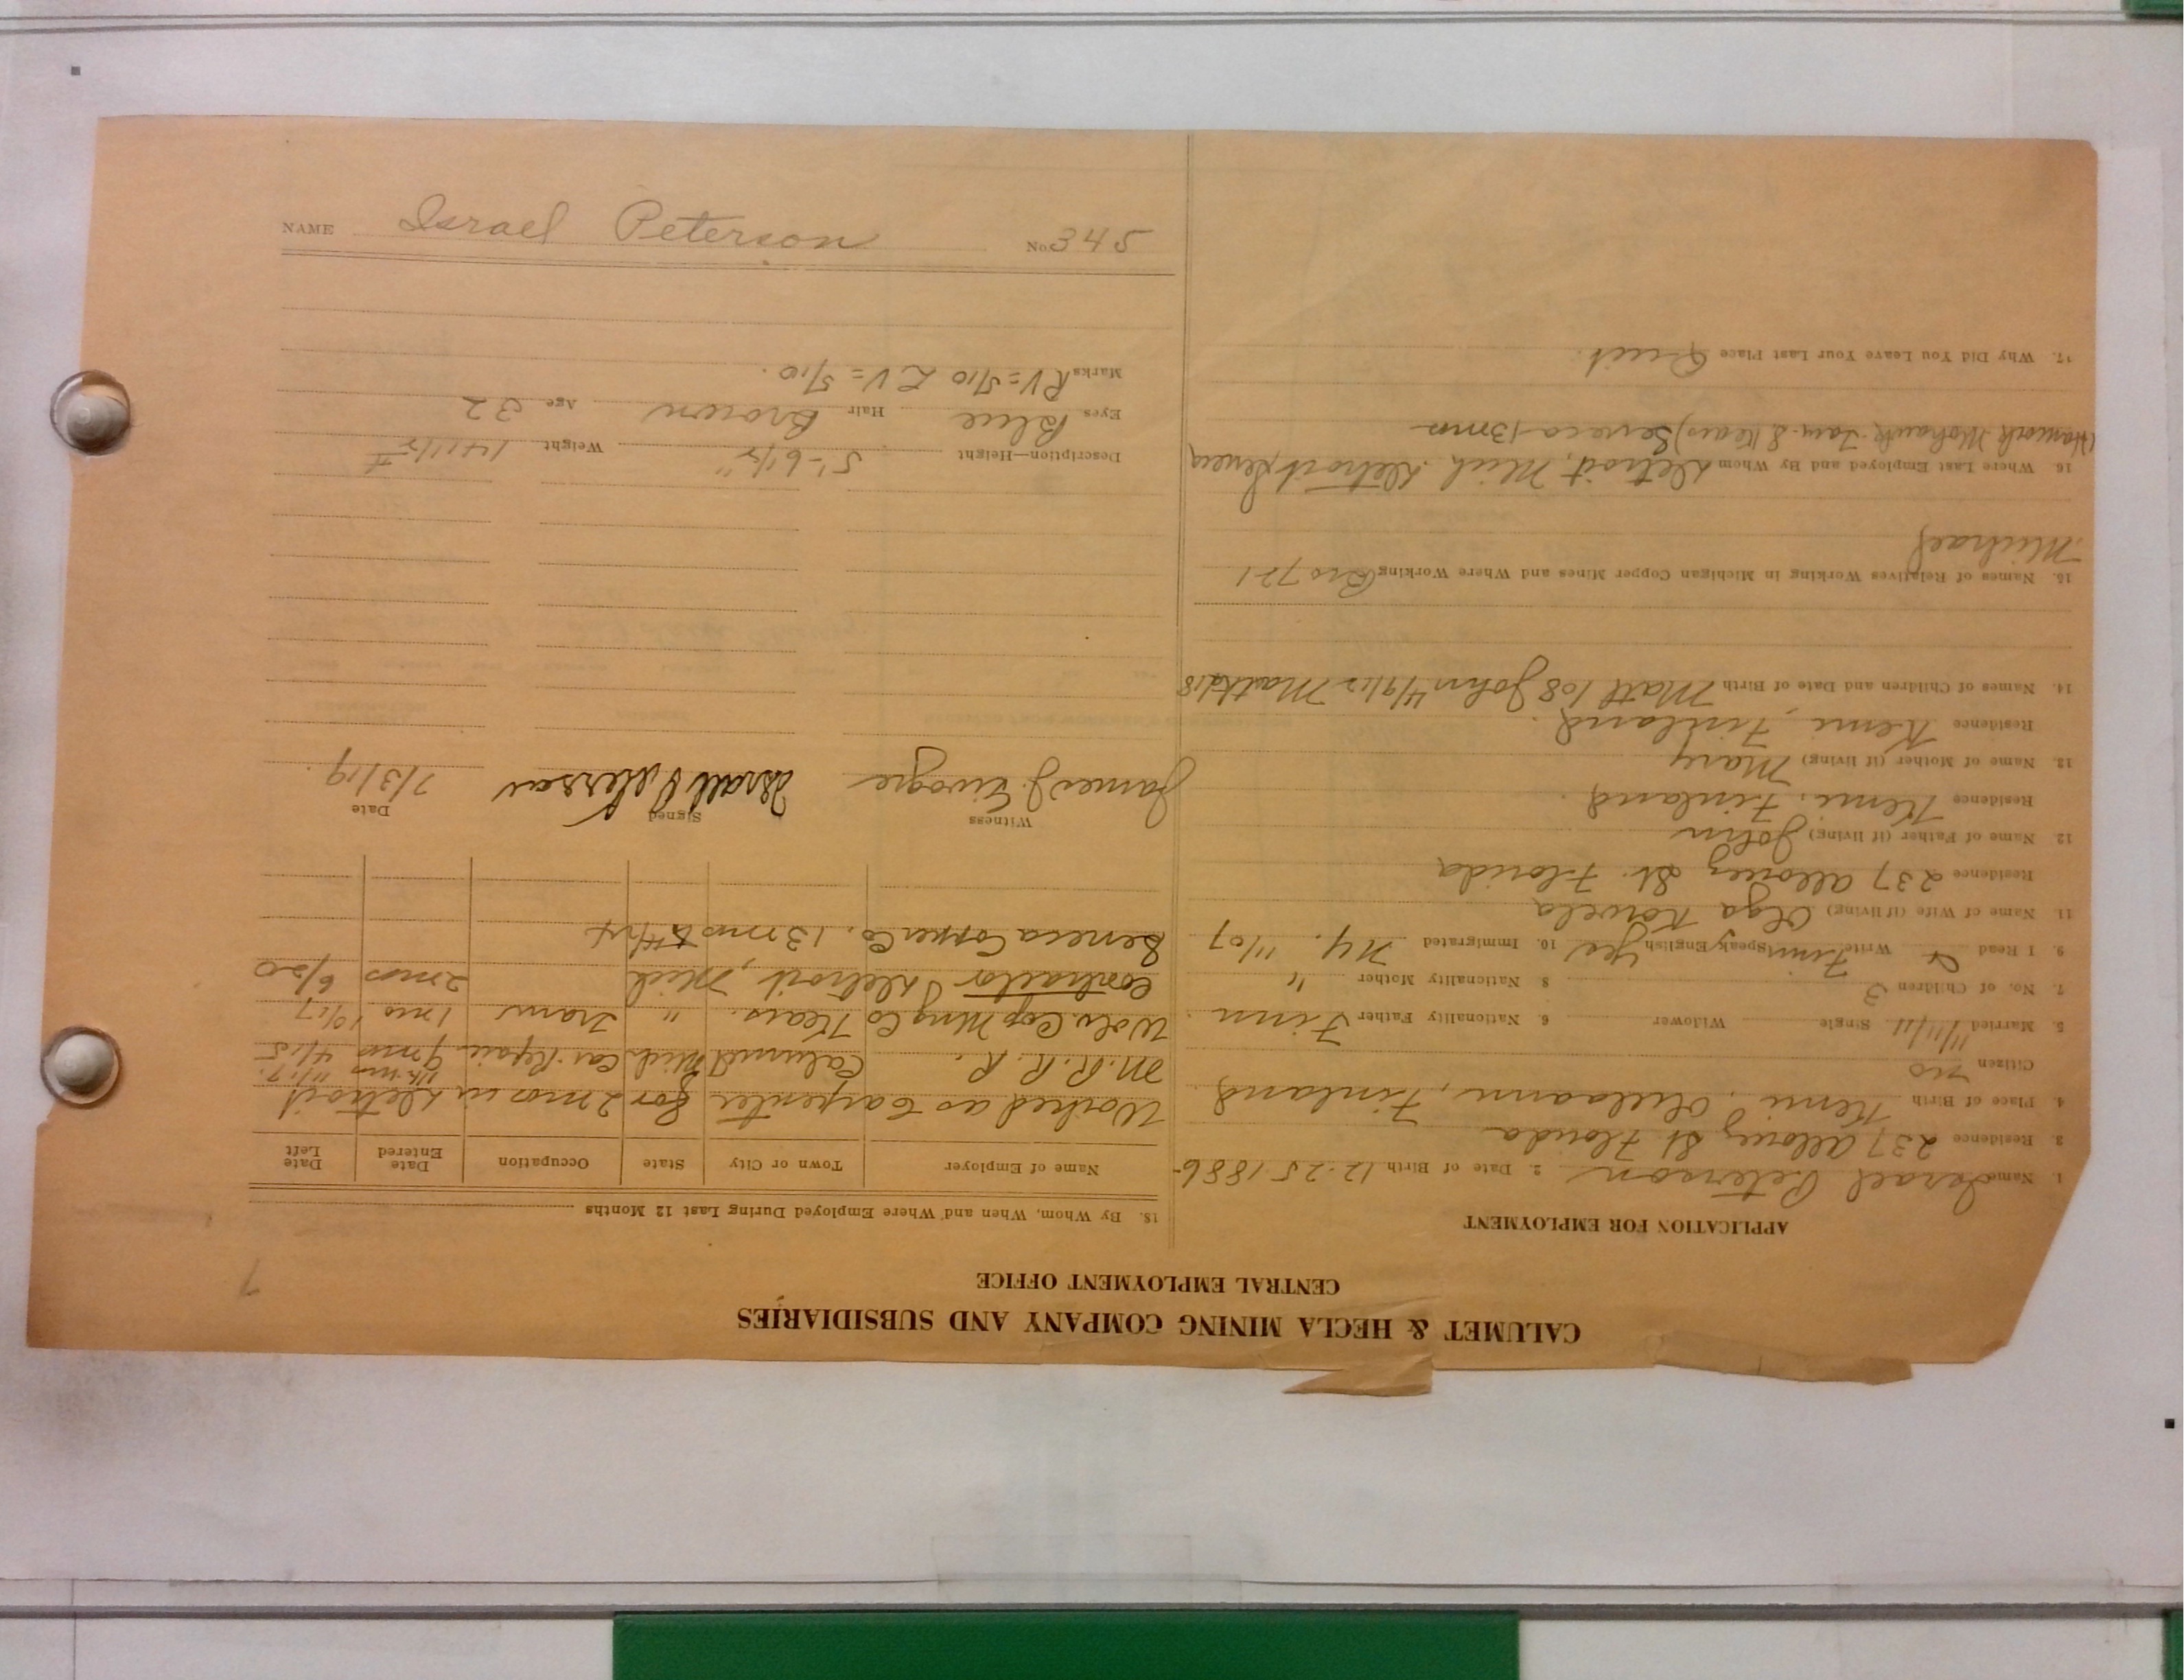 CALUMET & HECLA MINING COMPANY AND SUBSIDIARIES
CENTRAL EMPLOYMENT OFFICE
7
APPLICATION FOR EMPLOYMENT
1. Name Israel Peterson 2. Date of Birth 12-25-1886
3. Residence 237 Allouez St Florida
4. Place of Birth Kemi, Finland
Citizen no
5. Married 11/11/11 Single Widower 6. Nationality Father Finn
7. No. of Children 3 8 Nationality Mother "
9. I Read & Write Finn Speak English yes 10. Immigrated N.Y. 11/07
11. Name of Wife (if living) Olga
Residence 237 Allouez St. Florida
12. Name of Father (if living) John
Residence Kemi, Finland
13. Name of Mother (if living) Mary
Residence Kemi, Finland.
14. Names of Children and Date of Birth Matt John 4/9/12
15. Names of Relatives Working in Michigan Copper Mines and Where Working Bro 721
Michael
16. Where Last Employed and By Whom Detroit, Mich. Detroit Seneca
Mohawk Seneca 13 mos
17. Why Did You Leave Your Last Place Quit.
18. By Whom, When and Where Employed During Last 12 Months
Name of Employer Town or City State Occupation Date Entered Date Left
Worked as Carpenter for 2 mos in Detroit
M. R. R. R. Calumet Mich Car Repair 9 mos 4/15
Wolv. Cop Mng Co Kears. " Tram 1 mo 10/17
Contractor Detroit, Mich 2 mos 6/20
Seneca Copper Co. 13 mos
Witness Signed Date
James J. Israel Peterson 7/3/19.
Description—Height 5'-6 1/2" Weight 141 1/2 #
Eyes Blue Hair Brown Age 32
Marks RV=5/10 LV=5/10.
NAME Israel Peterson No. 345